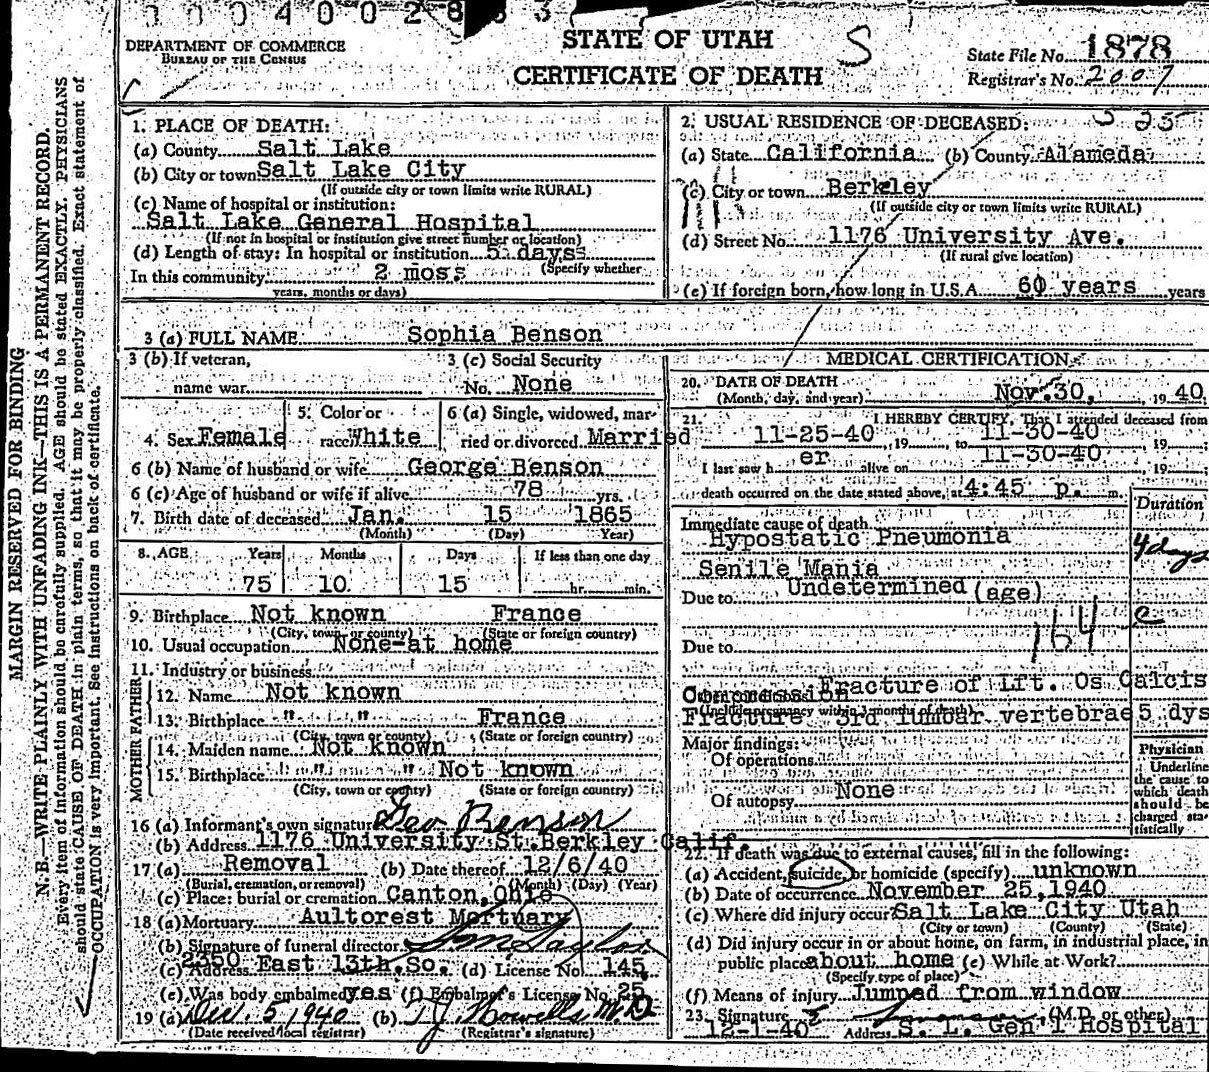 0 0 0 4 0 0 2 8 8 3
DEPARTMENT OF COMMERCE
BUREAU OF THE CENSUS
STATE OF UTAH
CERTIFICATE OF DEATH
S
State File No. 1878
Registrar's No. 2007
MARGIN RESERVED FOR BINDING
N. B.—WRITE PLAINLY WITH UNFADING INK—THIS IS A PERMANENT RECORD.
Every item of information should be carefully supplied. AGE should be stated EXACTLY. PHYSICIANS
should state CAUSE OF DEATH in plain terms, so that it may be properly classified. Exact statement of
OCCUPATION is very important. See instructions on back of certificate.
1. PLACE OF DEATH:
(a) County Salt Lake
(b) City or town Salt Lake City
(If outside city or town limits write RURAL)
(c) Name of hospital or institution:
Salt Lake General Hospital
(If not in hospital or institution give street number or location)
(d) Length of stay: In hospital or institution 5 days
(Specify whether
In this community 2 mos
years, months or days)
2. USUAL RESIDENCE OF DECEASED:
(a) State California (b) County Alameda
(c) City or town Berkley
(If outside city or town limits write RURAL)
(d) Street No. 1176 University Ave.
(If rural give location)
(e) If foreign born, how long in U.S.A. 60 years years
3 (a) FULL NAME Sophia Benson
3 (b) If veteran,
name war
3 (c) Social Security
No. None
4. Sex Female
5. Color or
race White
6 (a) Single, widowed, mar-
ried or divorced Married
6 (b) Name of husband or wife George Benson
6 (c) Age of husband or wife if alive 78 yrs.
7. Birth date of deceased Jan. 15 1865
(Month) (Day) Year)
8. AGE Years Months Days If less than one day
75 10 15 hr. min.
9. Birthplace Not known France
(City, town, or county) (State or foreign country)
10. Usual occupation None-at home
11. Industry or business
FATHER
12. Name Not known
13. Birthplace " " France
(City, town or county) (State or foreign country)
MOTHER
14. Maiden name Not known
15. Birthplace " " Not known
(City, town or county) (State or foreign country)
16 (a) Informant's own signature Geo Benson
(b) Address 1176 University St. Berkley Calif.
17 (a) Removal (b) Date thereof 12/6/40
(Burial, cremation, or removal) (Month) (Day) (Year)
(c) Place: burial or cremation Canton, Ohio
18 (a) Mortuary Aultorest Mortuary
(b) Signature of funeral director
(c) Address 2350 East 13th. So. (d) License No. 145
(e) Was body embalmed yes (f) Embalmer's License No. 25
19 (a) Dec. 5, 1940 (b) T J Howells M.D.
(Date received local registrar) (Registrar's signature)
MEDICAL CERTIFICATION
20. DATE OF DEATH
(Month, day, and year) Nov. 30, 19 40
21. I HEREBY CERTIFY, That I attended deceased from
11-25-40, 19 to 11-30-40 19
I last saw h er alive on 11-30-40, 19
death occurred on the date stated above, at 4:45 p. m.
Duration
Immediate cause of death
Hypostatic Pneumonia 4 days
Senile Mania
Due to Undetermined (age)
164 c
Due to
Fracture of Lft. Os Calcis
Compression
(Include pregnancy within 3 months of death)
Fracture 3rd lumbar vertebrae 5 dys
Major findings:
Of operations
Of autopsy None
Physician
Underline
the cause to
which death
should be
charged sta-
tistically
22. If death was due to external causes, fill in the following:
(a) Accident, suicide, or homicide (specify) unknown
(b) Date of occurrence November 25, 1940
(c) Where did injury occur Salt Lake City Utah
(City or town) (County) (State)
(d) Did injury occur in or about home, on farm, in industrial place, in
public place about home (e) While at Work?
(Specify type of place)
(f) Means of injury Jumped from window
23. Signature (M.D. or other)
12-1-40 Address S. L. Gen'l Hospital